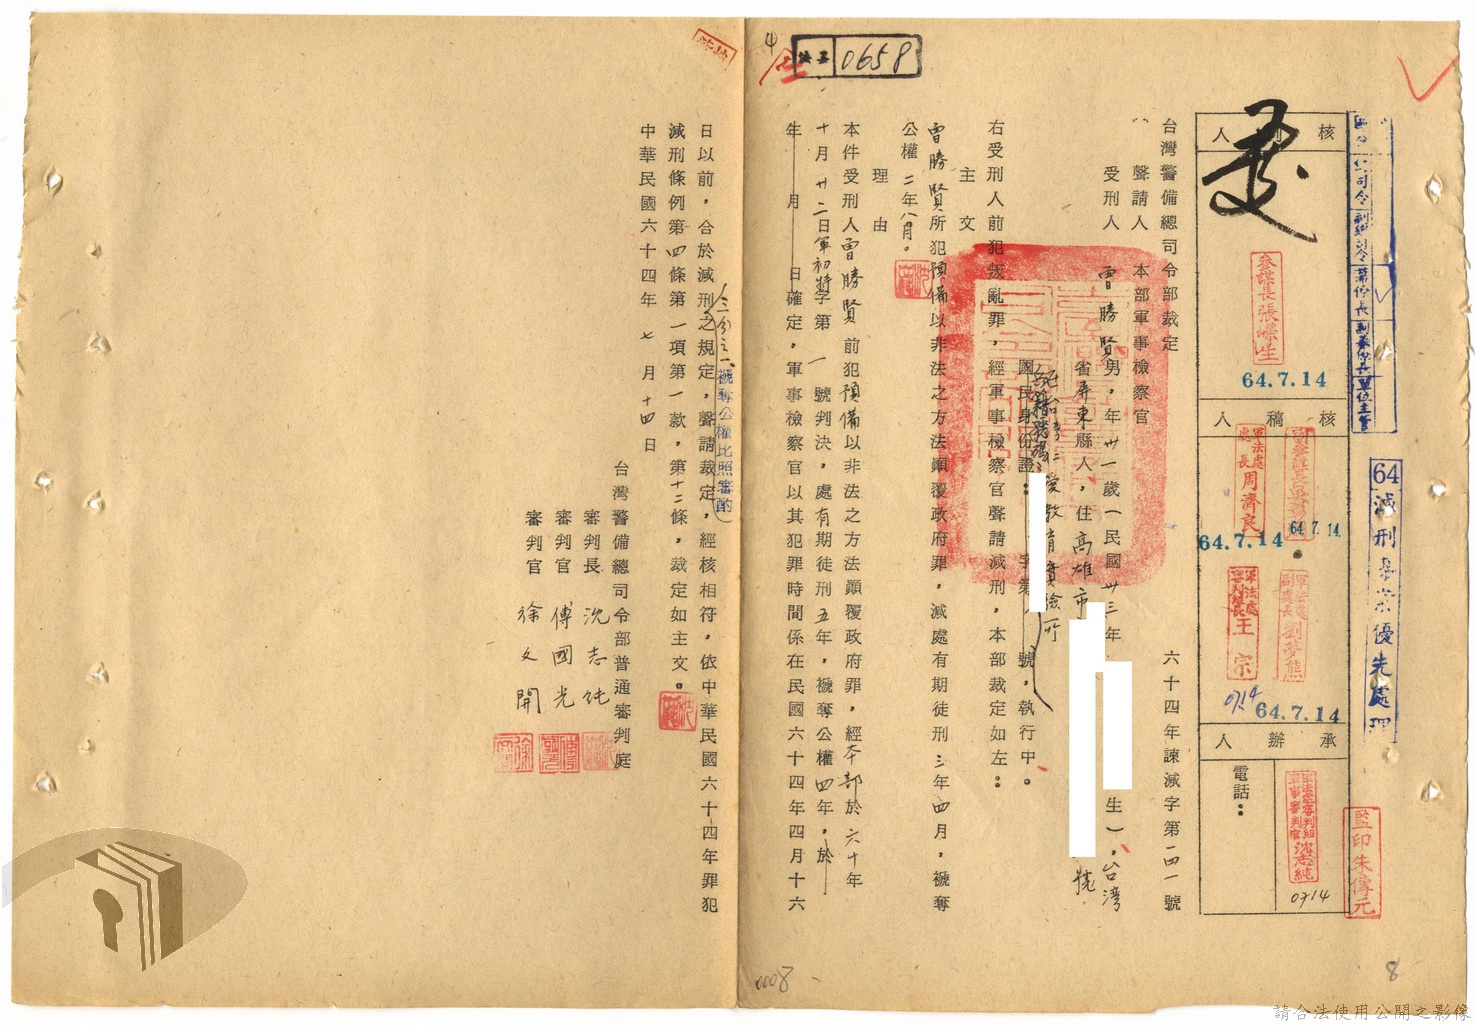 0658
4
台灣警備總司令部裁定
六十四年諫減字第一四一號
聲請人 本部軍事檢察官
受刑人 曾勝賢 男，年卅一歲（民國卅三年
生），台灣
省屏東縣人，住高雄市
號
國民身份證：
字第
號，執行中。
右受刑人前犯叛亂罪，經軍事檢察官聲請減刑，本部裁定如左：
主文
曾勝賢所犯預備以非法之方法顛覆政府罪，減處有期徒刑三年四月，褫奪
公權二年八月。
理由
本件受刑人曾勝賢前犯預備以非法之方法顛覆政府罪，經本部於六十年
十月廿二日 字第一號判決，處有期徒刑五年，褫奪公權四年，於
年 月 日確定，軍事檢察官以其犯罪時間係在民國六十四年四月十六
三分之一、褫奪公權比照審酌
日以前，合於減刑之規定，聲請裁定，經核相符，依中華民國六十四年罪犯
減刑條例第四條第一項第一款，第十二條，裁定如主文。
中華民國六十四年七月十四日
台灣警備總司令部普通審判庭
審判長 沈志純
審判官 傅國光
審判官 徐文開
核判人
參謀長張
64.7.14
核稿人
軍法處處長周濟良
64.7.14
64.7.14
軍法處副處長劉夢熊
王宗
0714
64.7.14
承辦人
電話：
軍法處審判組軍事審判官沈志純
0714
64減刑專案優先處理
監印朱傳元
0008
8
請合法使用公開之影像